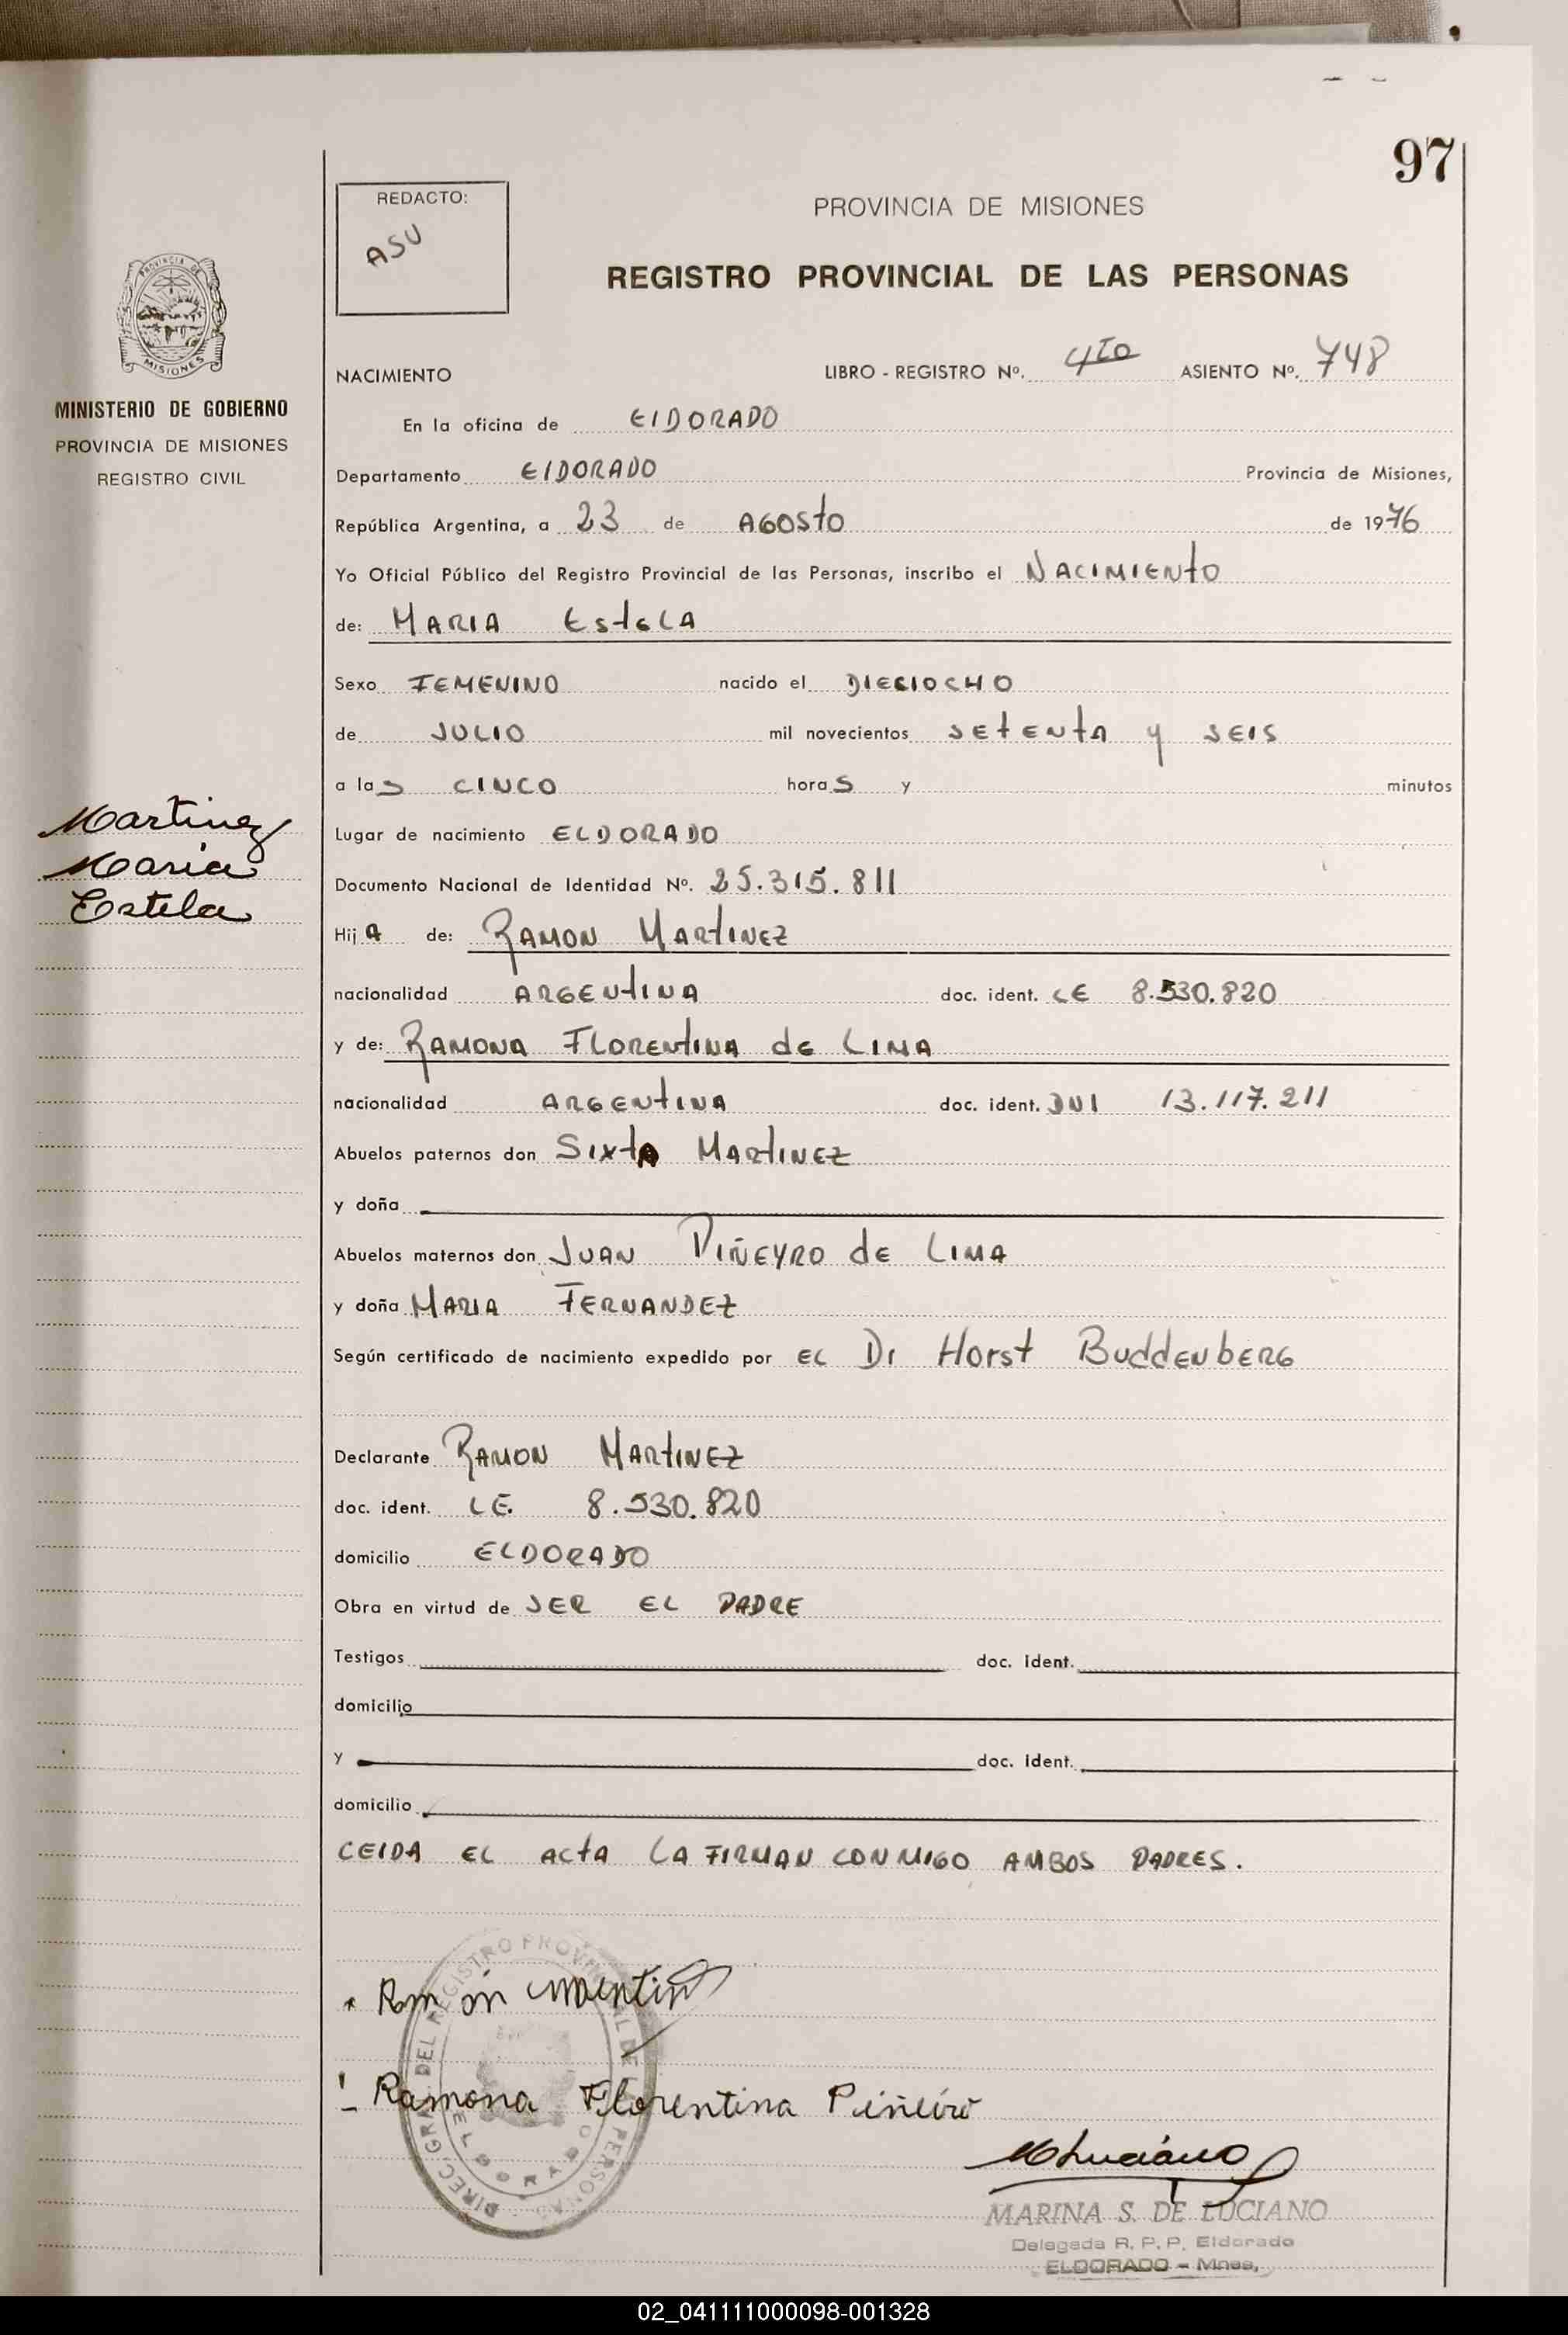 97
REDACTO:
ASU
PROVINCIA DE MISIONES
REGISTRO PROVINCIAL DE LAS PERSONAS
PROVINCIA DE
MISIONES
MINISTERIO DE GOBIERNO
PROVINCIA DE MISIONES
REGISTRO CIVIL
NACIMIENTO LIBRO - REGISTRO Nº. 4to ASIENTO Nº. 748
En la oficina de ElDORADO
Departamento ElDORADO Provincia de Misiones,
República Argentina, a 23 de AGOSto de 1976
Yo Oficial Público del Registro Provincial de las Personas, inscribo el NACIMIENto
de: MARIA EstELA
Sexo FEMENINO nacido el DIECIOCHO
de JULIO mil novecientos SEtENtA y SEIS
a las CINCO horaS y minutos
Martinez
Maria
Estela
Lugar de nacimiento ELDORADO
Documento Nacional de Identidad Nº. 25.315.811
Hija de: RAMON MARtINEZ
nacionalidad ARGENtINA doc. ident. LE 8.530.820
y de: RAMONA FLORENtINA dE LIMA
nacionalidad ARGENtINA doc. ident. DNI 13.117.211
Abuelos paternos don SIXtA MARtINEZ
y doña
Abuelos maternos don JUAN PIÑEYRO dE LIMA
y doña MARIA FERNANDEZ
Según certificado de nacimiento expedido por EL Dr Horst BuddENbERG
Declarante RAMON MARtINEZ
doc. ident. LE. 8.530.820
domicilio ELDORADO
Obra en virtud de SER EL PADRE
Testigos doc. ident.
domicilio
y doc. ident.
domicilio
LEIDA EL ACtA LA FIRMAN CONMIGO AMBOS PADRES.
Ramona Florentina Piñeiro
DIREC. GRAL DEL REGISTRO PROVINCIAL DE PERSONAS
ELDORADO
MARINA S. DE LUCIANO
Delegada R. P. P. Eldorado
ELDORADO - Mnes.
02_041111000098-001328